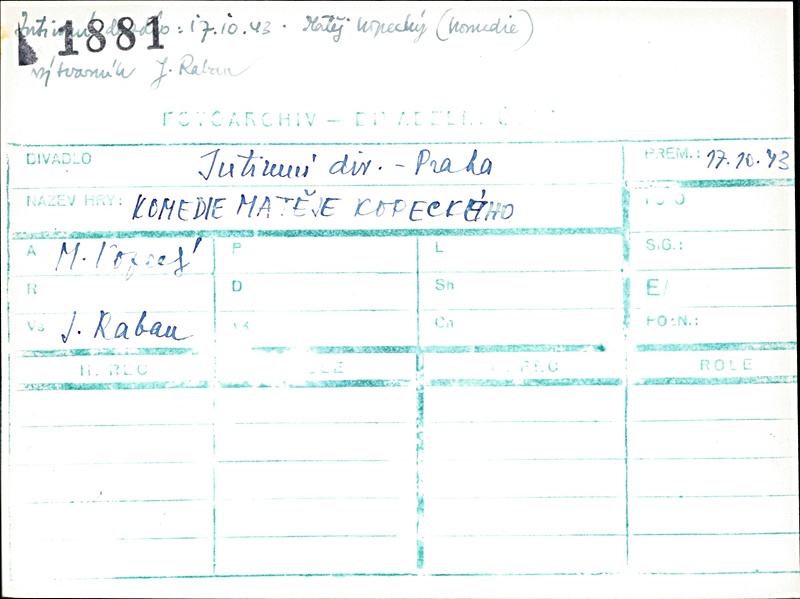 Intimní divadlo: 17.10.43. Matěj Kopecký (Komedie)
1881
výtvarník J. Raban
FOTOARCHIV – DIVADELNÍ
DIVADLO Intimní div. - Praha PREM.: 17.10.43
NÁZEV HRY: KOMEDIE MATĚJE KOPECKÉHO FOTO
A M. Kopecký P L SIG.:
R D Sh E/
Vs J. Raban Ch POZN.:
HEREC ROLE HEREC ROLE